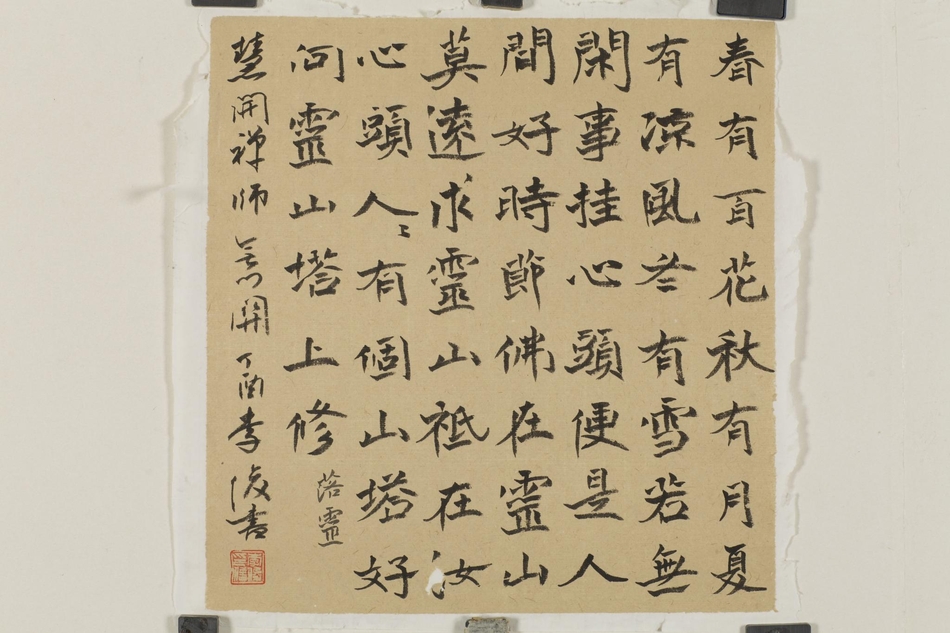 春有百花秋有月夏
有凉風冬有雪若無
閑事挂心頭便是人
間好時節佛在靈山
莫遠求靈山祗在汝
心頭人〻有個山塔好
向靈山塔上修
落靈
慧開禅师无门關丁酉李書